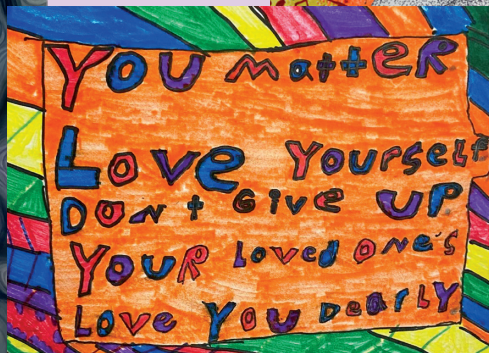 You matteR
Love Yourself
Don't Give up
YouR Loved one's
Love You DearLY